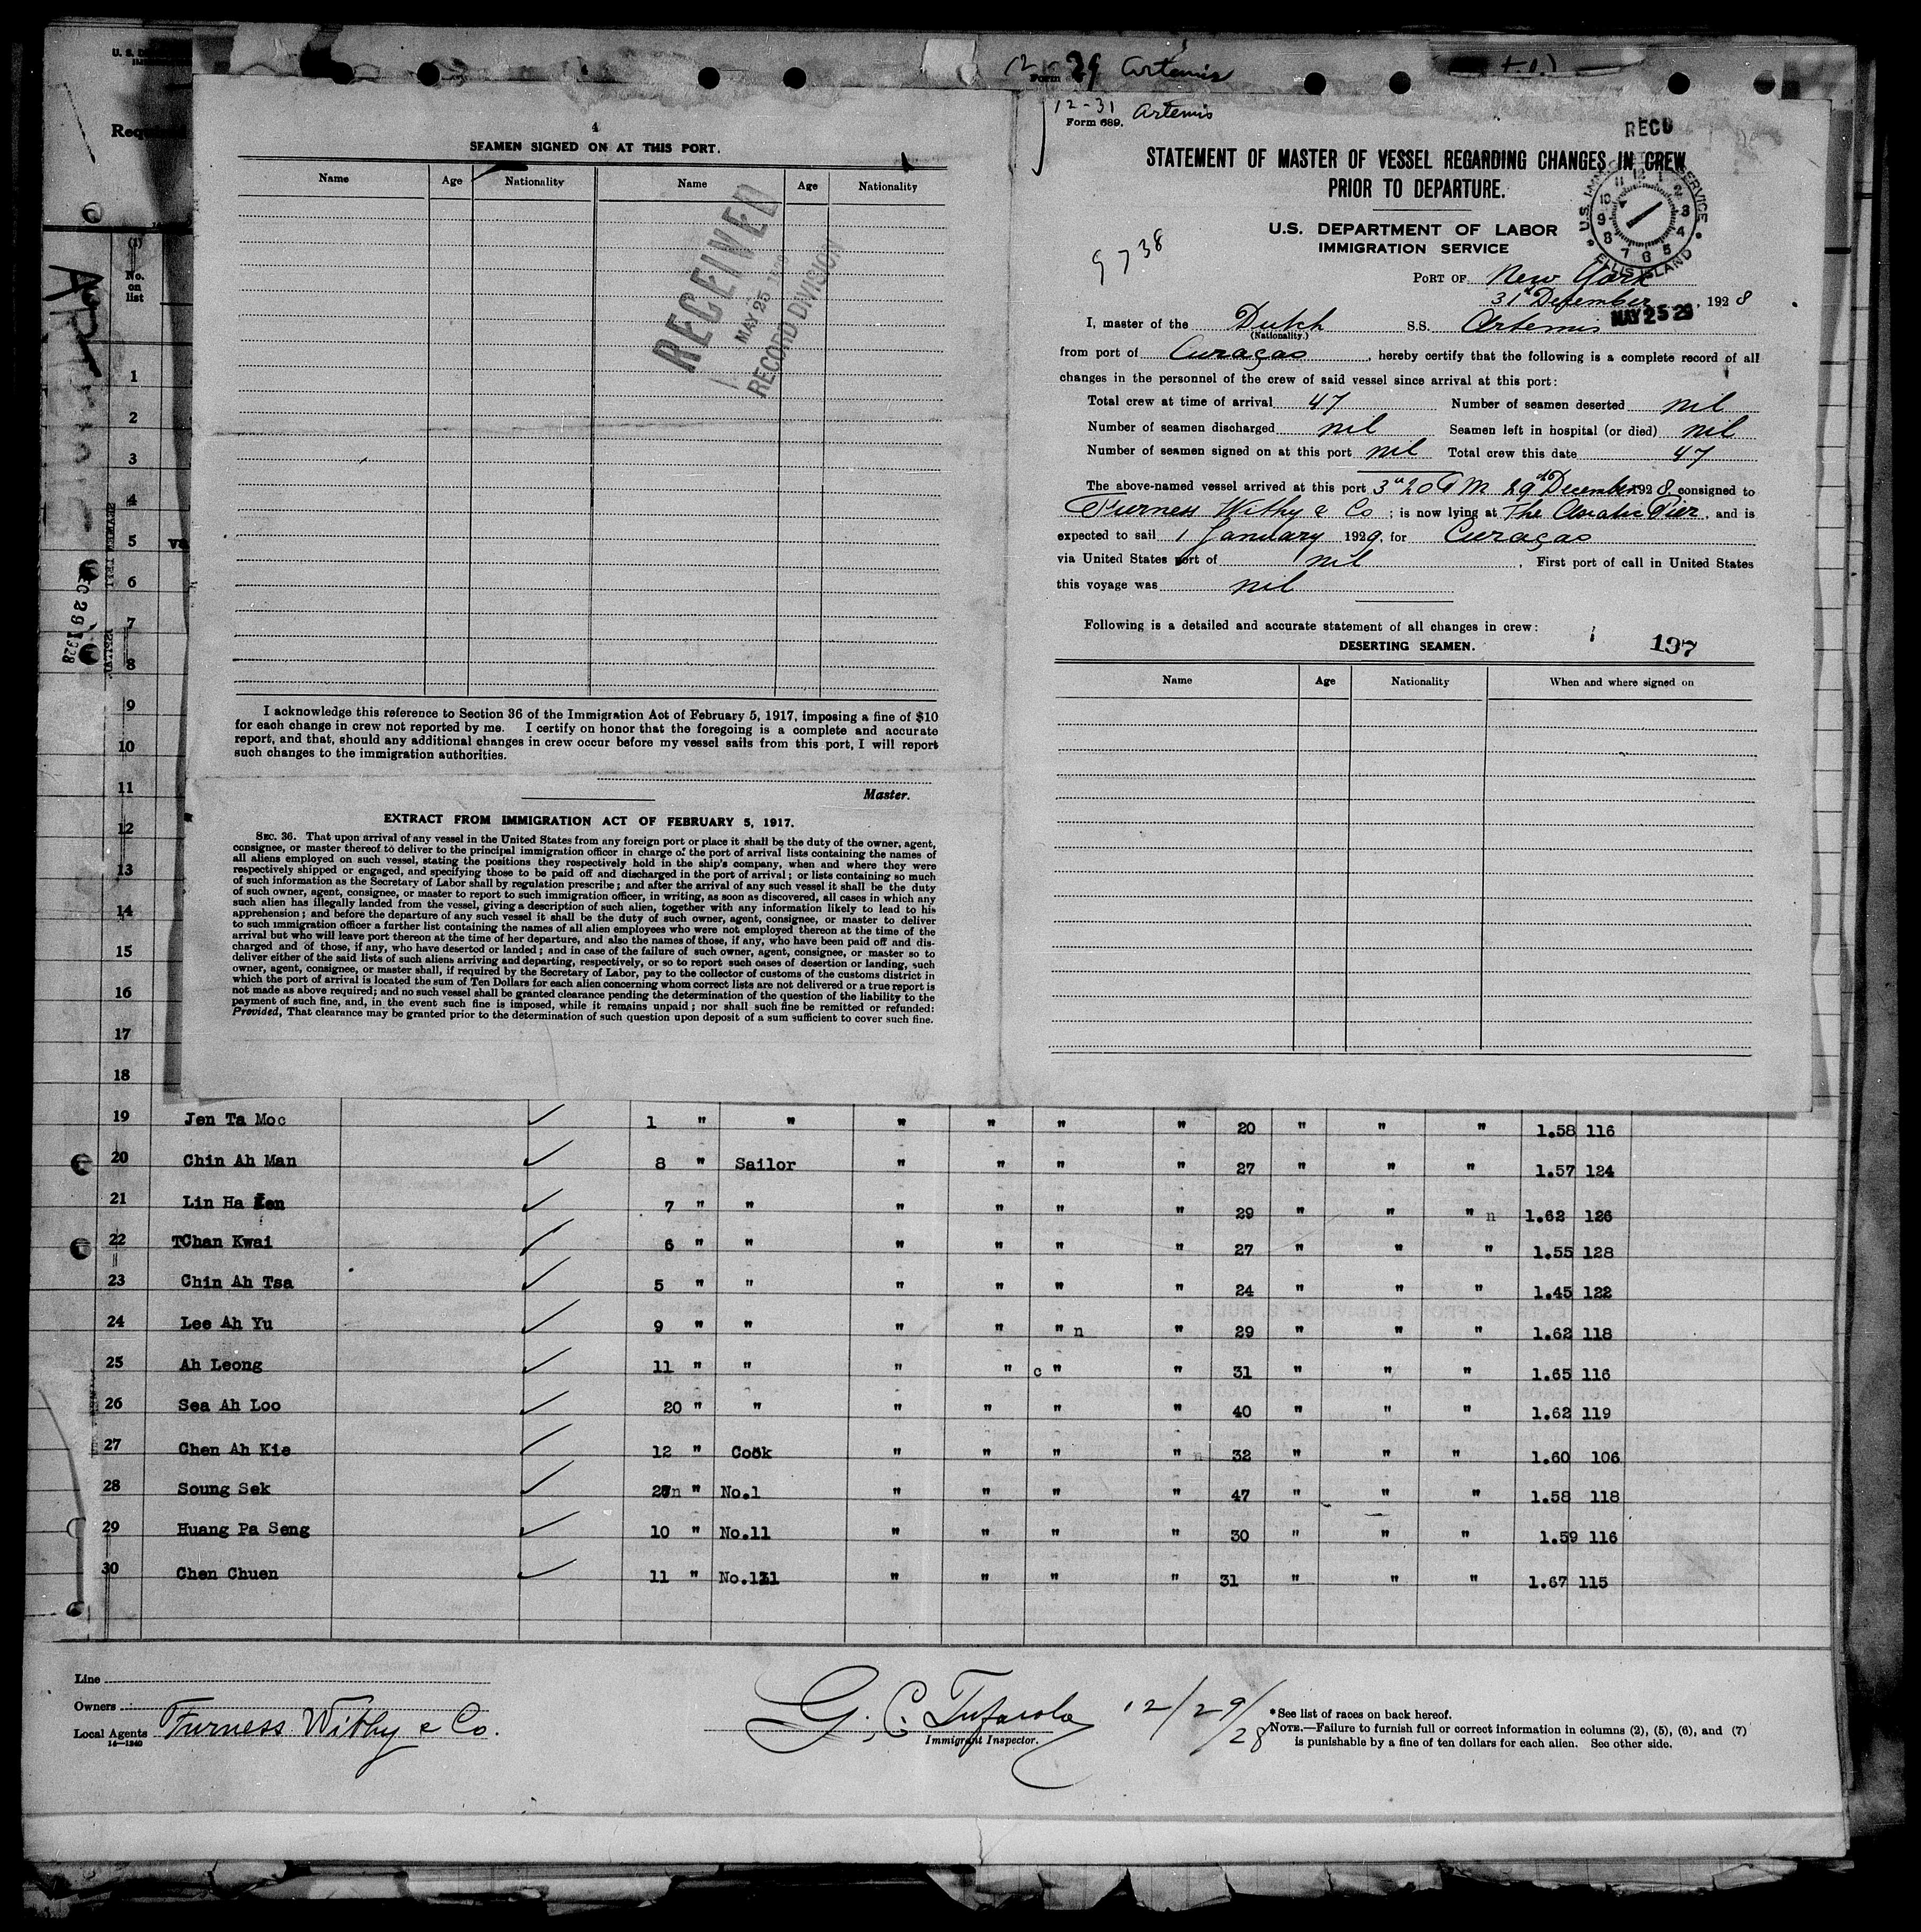 12 29 Artemis
12-31 Artemis
Form 689.
4
SEAMEN SIGNED ON AT THIS PORT.
Name Age Nationality Name Age Nationality
RECEIVED
MAY 25
RECORD DIVISION
I acknowledge this reference to Section 36 of the Immigration Act of February 5, 1917, imposing a fine of $10
for each change in crew not reported by me. I certify on honor that the foregoing is a complete and accurate
report, and that, should any additional changes in crew occur before my vessel sails from this port, I will report
such changes to the immigration authorities.
Master.
EXTRACT FROM IMMIGRATION ACT OF FEBRUARY 5, 1917.
SEC. 36. That upon arrival of any vessel in the United States from any foreign port or place it shall be the duty of the owner, agent,
consignee, or master thereof to deliver to the principal immigration officer in charge of the port of arrival lists containing the names of
all aliens employed on such vessel, stating the positions they respectively hold in the ship's company, when and where they were
respectively shipped or engaged, and specifying those to be paid off and discharged in the port of arrival; or lists containing so much
of such information as the Secretary of Labor shall by regulation prescribe; and after the arrival of any such vessel it shall be the duty
of such owner, agent, consignee, or master to report to such immigration officer, in writing, as soon as discovered, all cases in which any
such alien has illegally landed from the vessel, giving a description of such alien, together with any information likely to lead to his
apprehension; and before the departure of any such vessel it shall be the duty of such owner, agent, consignee, or master to deliver
to such immigration officer a further list containing the names of all alien employees who were not employed thereon at the time of the
arrival but who will leave port thereon at the time of her departure, and also the names of those, if any, who have been paid off and dis-
charged and of those, if any, who have deserted or landed; and in case of the failure of such owner, agent, consignee, or master so to
deliver either of the said lists of such aliens arriving and departing, respectively, or so to report such cases of desertion or landing, such
owner, agent, consignee, or master shall, if required by the Secretary of Labor, pay to the collector of customs of the customs district in
which the port of arrival is located the sum of Ten Dollars for each alien concerning whom correct lists are not delivered or a true report is
not made as above required; and no such vessel shall be granted clearance pending the determination of the question of the liability to the
payment of such fine, and, in the event such fine is imposed, while it remains unpaid; nor shall such fine be remitted or refunded:
Provided, That clearance may be granted prior to the determination of such question upon deposit of a sum sufficient to cover such fine.
RECD
STATEMENT OF MASTER OF VESSEL REGARDING CHANGES IN CREW
PRIOR TO DEPARTURE.
U.S. DEPARTMENT OF LABOR
IMMIGRATION SERVICE
ELLIS ISLAND
9738
PORT OF New York
31st December, 1928
MAY 25 29
I, master of the Dutch S.S. Artemis
(Nationality.)
from port of Curaçao, hereby certify that the following is a complete record of all
changes in the personnel of the crew of said vessel since arrival at this port:
Total crew at time of arrival 47 Number of seamen deserted nil
Number of seamen discharged nil Seamen left in hospital (or died) nil
Number of seamen signed on at this port nil Total crew this date 47
The above-named vessel arrived at this port 29th December 1928, consigned to
Furness Withy & Co; is now lying at The Pier, and is
expected to sail 1 January 1929, for Curaçao
via United States port of nil. First port of call in United States
this voyage was nil
Following is a detailed and accurate statement of all changes in crew:
197
DESERTING SEAMEN.
Name Age Nationality When and where signed on
(1)
No. on list
DEC 29 1928
1
2
3
4
5
6
7
8
9
10
11
12
13
14
15
16
17
18
19 Jen Ta Moc 1 " " " " " " 20 " " " 1.58 116
20 Chin Ah Man 8 " Sailor " " " " 27 " " " 1.57 124
21 Lin Ha 7 " " " " " " 29 " " " n 1.62 126
22 TChan Kwai 6 " " " " " " 27 " " " 1.55 128
23 Chin Ah Tsa 5 " " " " " " 24 " " " 1.45 122
24 Lee Ah Yu 9 " " " " " n " 29 " " " 1.62 118
25 Ah Leong 11 " " " " c " " 31 " " " 1.65 116
26 Sea Ah Loo 20 " " " " " " 40 " " " 1.62 119
27 Chen Ah Kie 12 " Cook " " " " 32 " " " 1.60 106
28 Soung Sek " No.1 " " " " 47 " " " 1.58 118
29 Huang Pa Seng 10 " No.11 " " " " 30 " " " 1.59 116
30 Chen Chuen 11 " " " " " 31 " " " 1.67 115
Line
Owners
Local Agents Furness Withy & Co.
14—1240
G. C. Tufarola 12/29/28
Immigrant Inspector.
*See list of races on back hereof.
NOTE.—Failure to furnish full or correct information in columns (2), (5), (6), and (7)
is punishable by a fine of ten dollars for each alien. See other side.